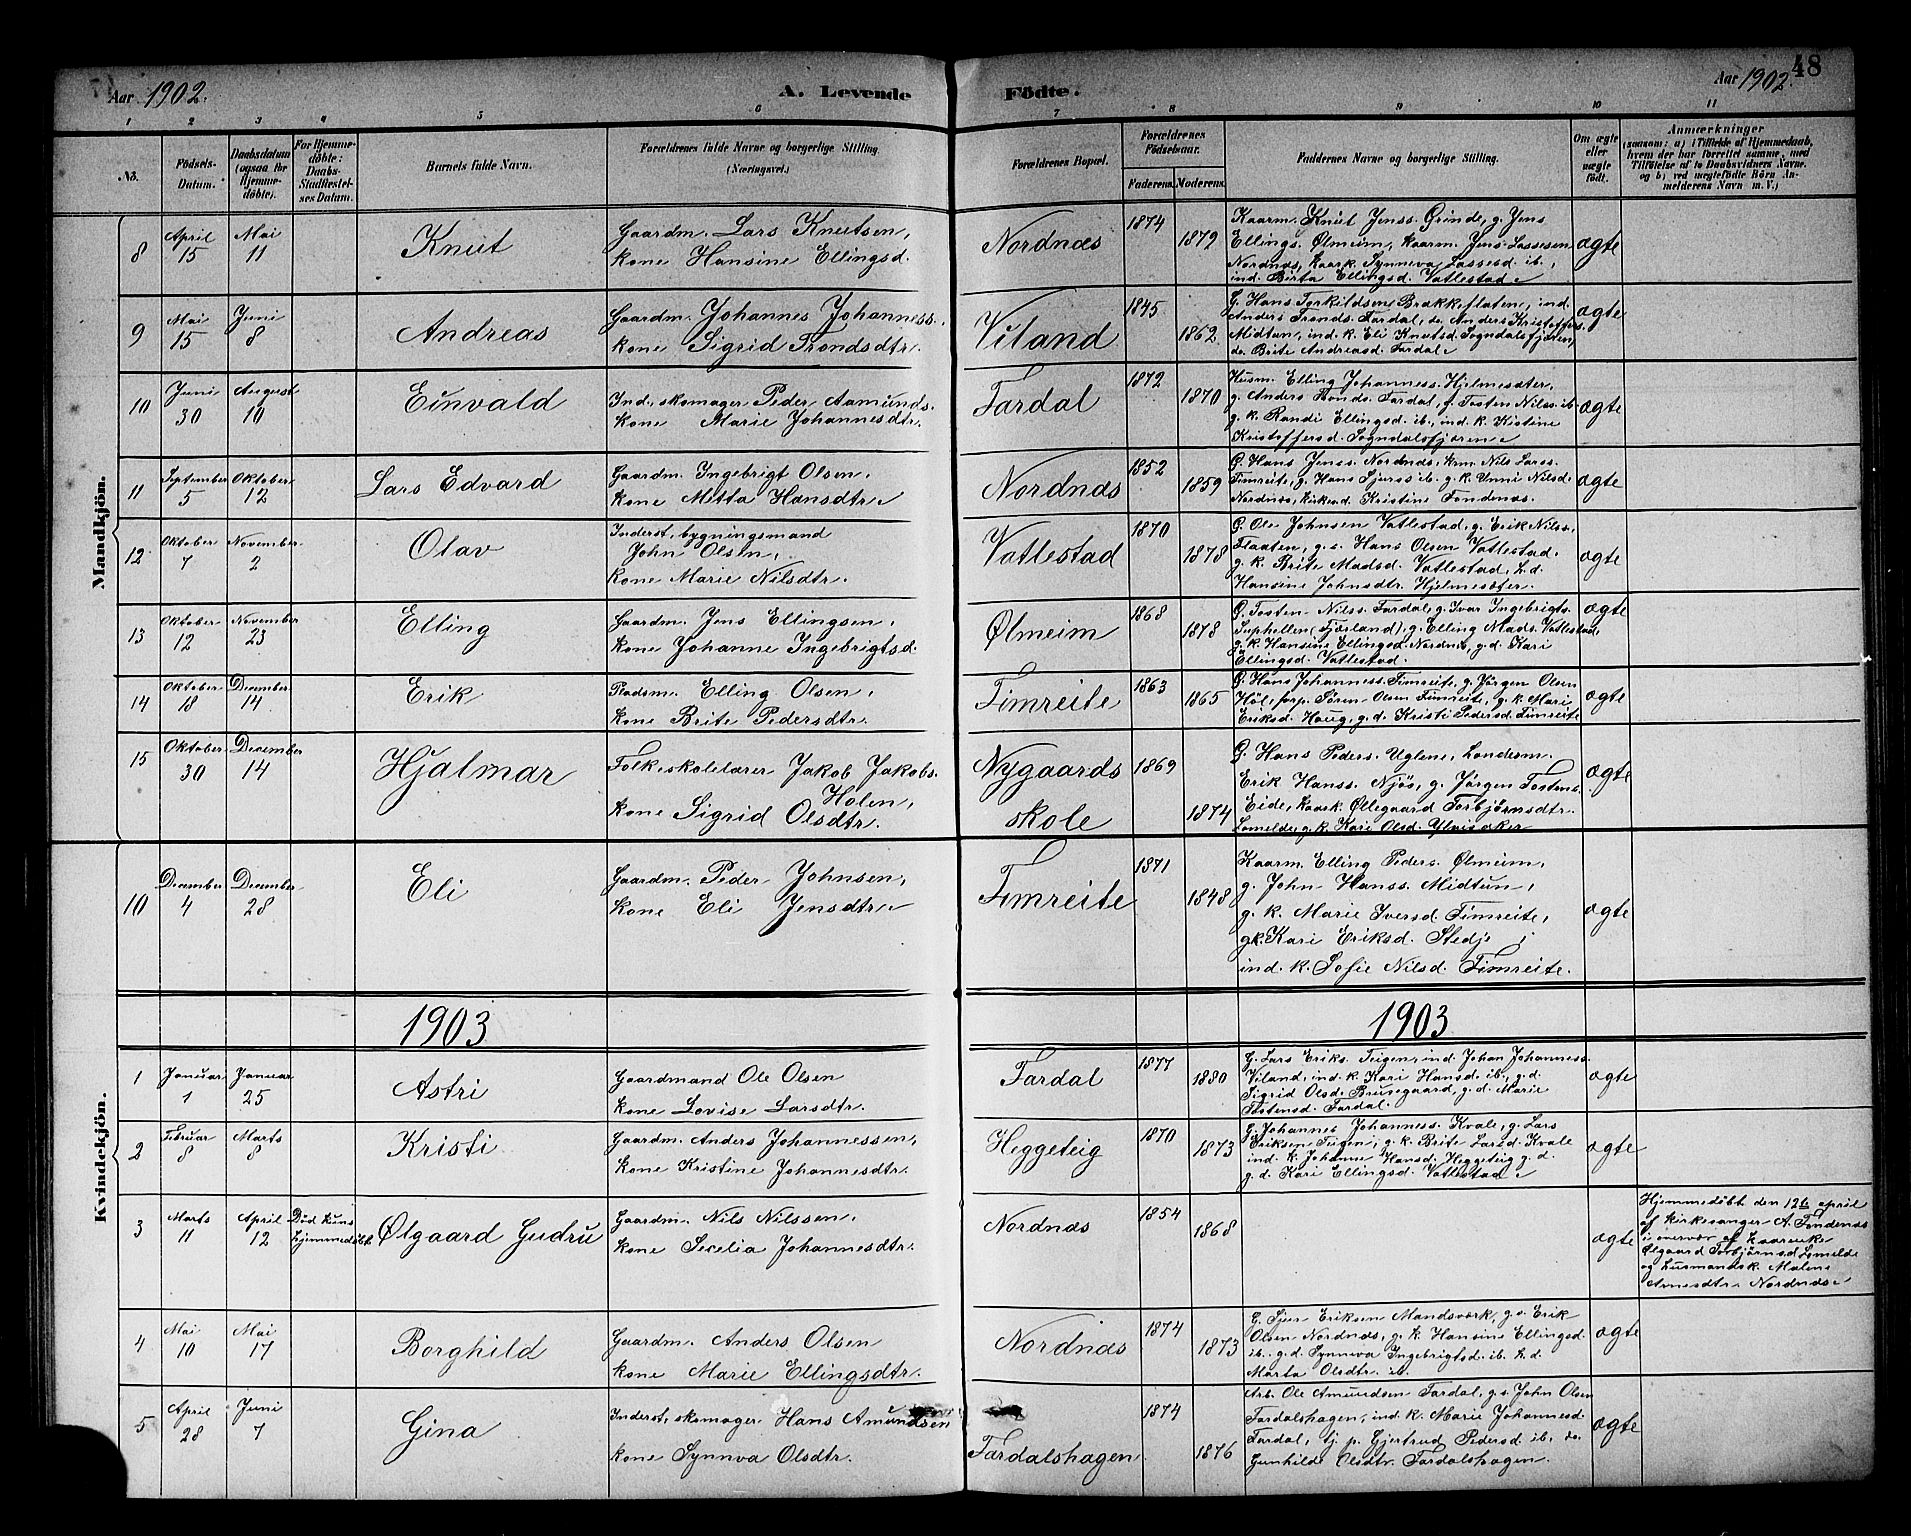 Aar 1902. A. Levende Födte. Aar 1902. 48
1 2 3 4 5 6 7 8 9 10 11
No. Födsels-Datum. Daabsdatum (ogsaa for Hjemmedøbte). For Hjemmedøbte: Daabs-Stadfæstelses Datum. Barnets fulde Navn. Forældrenes fulde Navne og borgerlige Stilling. (Næringsvei.) Forældrenes Bopæl. Forældrenes Födselsaar. Faderens. Moderens. Faddernes Navne og borgerlige Stilling. Om ægte eller uægte födt. Anmærkninger (saasom: a) i Tilfælde af Hjemmedaab, hvem der har forrettet samme, med Tilføielse af to Daabsvidners Navne. og b) ved uægtefödte Börn Anmelderens Navn m. V.)
Mandkjön.
8 April 15 Mai 11 Knut Gaardm. Lars Knutsen, kone Hansine Ellingsd. Nordnæs 1874 1879 Kaarm. Knut Jenss. Grinde, g. Jens
Ellings. Ølmeim, kaarm. Jens Lassesen
Nordnæs, kaark. Synneva Lassesd. ib.,
ind. Birta Ellingsd. Vatlestad. ægte
9 Mai 15 Juni 8 Andreas Gaardm. Johannes Johanness. kone Sigrid Trondsdtr. Viland 1845 1862 G. Hans Torkildsen Brækkeflaten, ind.
Anders Tronds. Fardal, do. Anders Kristoffers.
Midtun, ind. k. Eli Knutsd. Sogndalsfjøren,
do. Brite Andreasd. Fardal. ægte
10 Juni 30 August 10 Einvald Ind., skomager Peder Aamunds. kone Marie Johannesdtr. Fardal 1872 1870 Husm. Elling Johanness. Hjelmesæter,
g. Anders Tronds. Fardal, g. Tosten Nilss. ib.
g. k. Randi Ellingsd. ib., ind. k. Kistine
Kristoffersd. Sogndalsfjøren. ægte
11 September 5 Oktober 12 Lars Edvard Gaardm. Ingebrigt Olsen, kone Mitta Hansdtr. Nordnæs 1852 1859 G. Hans Jenss. Nordnæs, krm. Nils Larss.
Timreite, g. Hans Sjurss. ib. g. k. Unni Nilsd.
Nordnæs, kirkesd. Kristine Tondenæs. ægte
12 Oktober 7 November 2 Olav Inderst, bygningsmand
John Olsen,
kone Marie Nilsdtr. Vatlestad 1870 1878 G. Ole Johnsen Vatlestad, g. Erik Nilss.
Flaaten, g. s. Hans Olsen Vatlestad.
g. k. Brite Madsd. Vatlestad, h. d.
Hansine Johnsdtr. Hjelmesæter. ægte
13 Oktober 12 November 23 Elling Gaardm. Jens Ellingsen, kone Johanne Ingebrigtsd. Ølmeim 1868 1878 G. Tosten Nilss. Fardal, g. Ivar Ingebrigts.
Suphellen (Fjærland), g. Elling Mads. Vatlestad,
g. k. Hansine Ellingsd. Nordnæs, g. d. Kari
Ellingsd. Vatlestad. ægte
14 Oktober 18 December 14 Erik Pladsm. Elling Olsen, kone Brite Pedersdtr. Timreite 1863 1865 G. Hans Johanness. Timreite, g. Jørgen Olsen
Høle, forp. Søren Olsen Timreite, g. k. Mari
Eriksd. Haug, g. d. Kristi Pedersd. Timreite ægte
15 Oktober 30 December 14 Hjalmar Folkeskolelærer Jakob Jakobs. Holen, kone Sigrid Olsdtr. Nygaards skole 1869 1874 G. Hans Peders. Uglene, Londerm.
Erik Hanss. Njøs, g. Jørgen Tostens.
Eide, kaark. Øllegaard Torbjørnsdtr.
Lomelde, g. k. Kari Olsd. Ylvisaker ægte
Kvindekjön.
10 December 4 December 28 Eli Gaardm. Peder Johnsen, kone Eli Jensdtr. Timreite 1871 1848 Kaarm. Elling Peders. Ølmeim,
g. John Hanss. Midtun,
g. k. Marie Iversd. Timreite,
g.k. Kari Eriksd. Stedje,
ind. k. Sofie Nilsd. Timreite. ægte
1903 1903
1 Januar 1 Januar 25 Astri Gaardmand Ole Olsen kone Lovise Larsdtr. Fardal 1877 1880 G. Lars Eriks. Teigen, ind. Johan Johanness.
Viland, ind. k. Kari Hansd. ib., g. d.
Sigrid Olsd. Brusegaard, g. d. Marie
Tostensd. Fardal. ægte
2 Februar 8 Marts 8 Kristi Gaardm. Anders Johannessen, kone Kristine Johannesdtr. Heggeteig 1870 1873 G. Johannes Johanness. Kvale, g. Lars
Eriksen Teigen, g. k. Brite Larsd. Kvale
ind. k. Johanne Hansd. Heggeteig g. d.
g. d. Kari Ellingsd. Vatlestad. ægte
3 Marts 11 April 12 Död kuns hjemmedøbt. Ølgaard Gudru Gaardm. Nils Nilssen, kone Secelia Johannesdtr. Nordnæs 1854 1868 ægte Hjemmedöbt den 12te april
af kirkesanger A. Tondenæs
i overvær af kaarenke
Ølgaard Torbjörnsd. Lomelde
og husmandsk. Malene
Arnesdtr. Nordnæs.
4 Mai 10 Mai 17 Borghild Gaardm. Anders Olsen kone Marie Ellingsdtr. Nordnæs 1874 1873 G. Sjur Eriksen Mandsværk, g. s. Erik
Olsen Nordnæs, g. k. Hansine Ellingsd.
ib. g. d. Synneva Ingebrigtsd. ib. h. d.
Marta Olsdtr. ib. ægte
5 April 28 Juni 7 Gina Inderst, skomager Hans Amundsen kone Synnva Olsdtr. Fardalshagen 1874 1876 Arb. Ole Amundsen Fardal, g. s. John Olsen
Fardalshagen, ind. k. Marie Johannesd.
Fardal, tj. p. Gjertrud Pedersd. ib., do.
Gunhilde Olsdtr. Fardalshagen. ægte